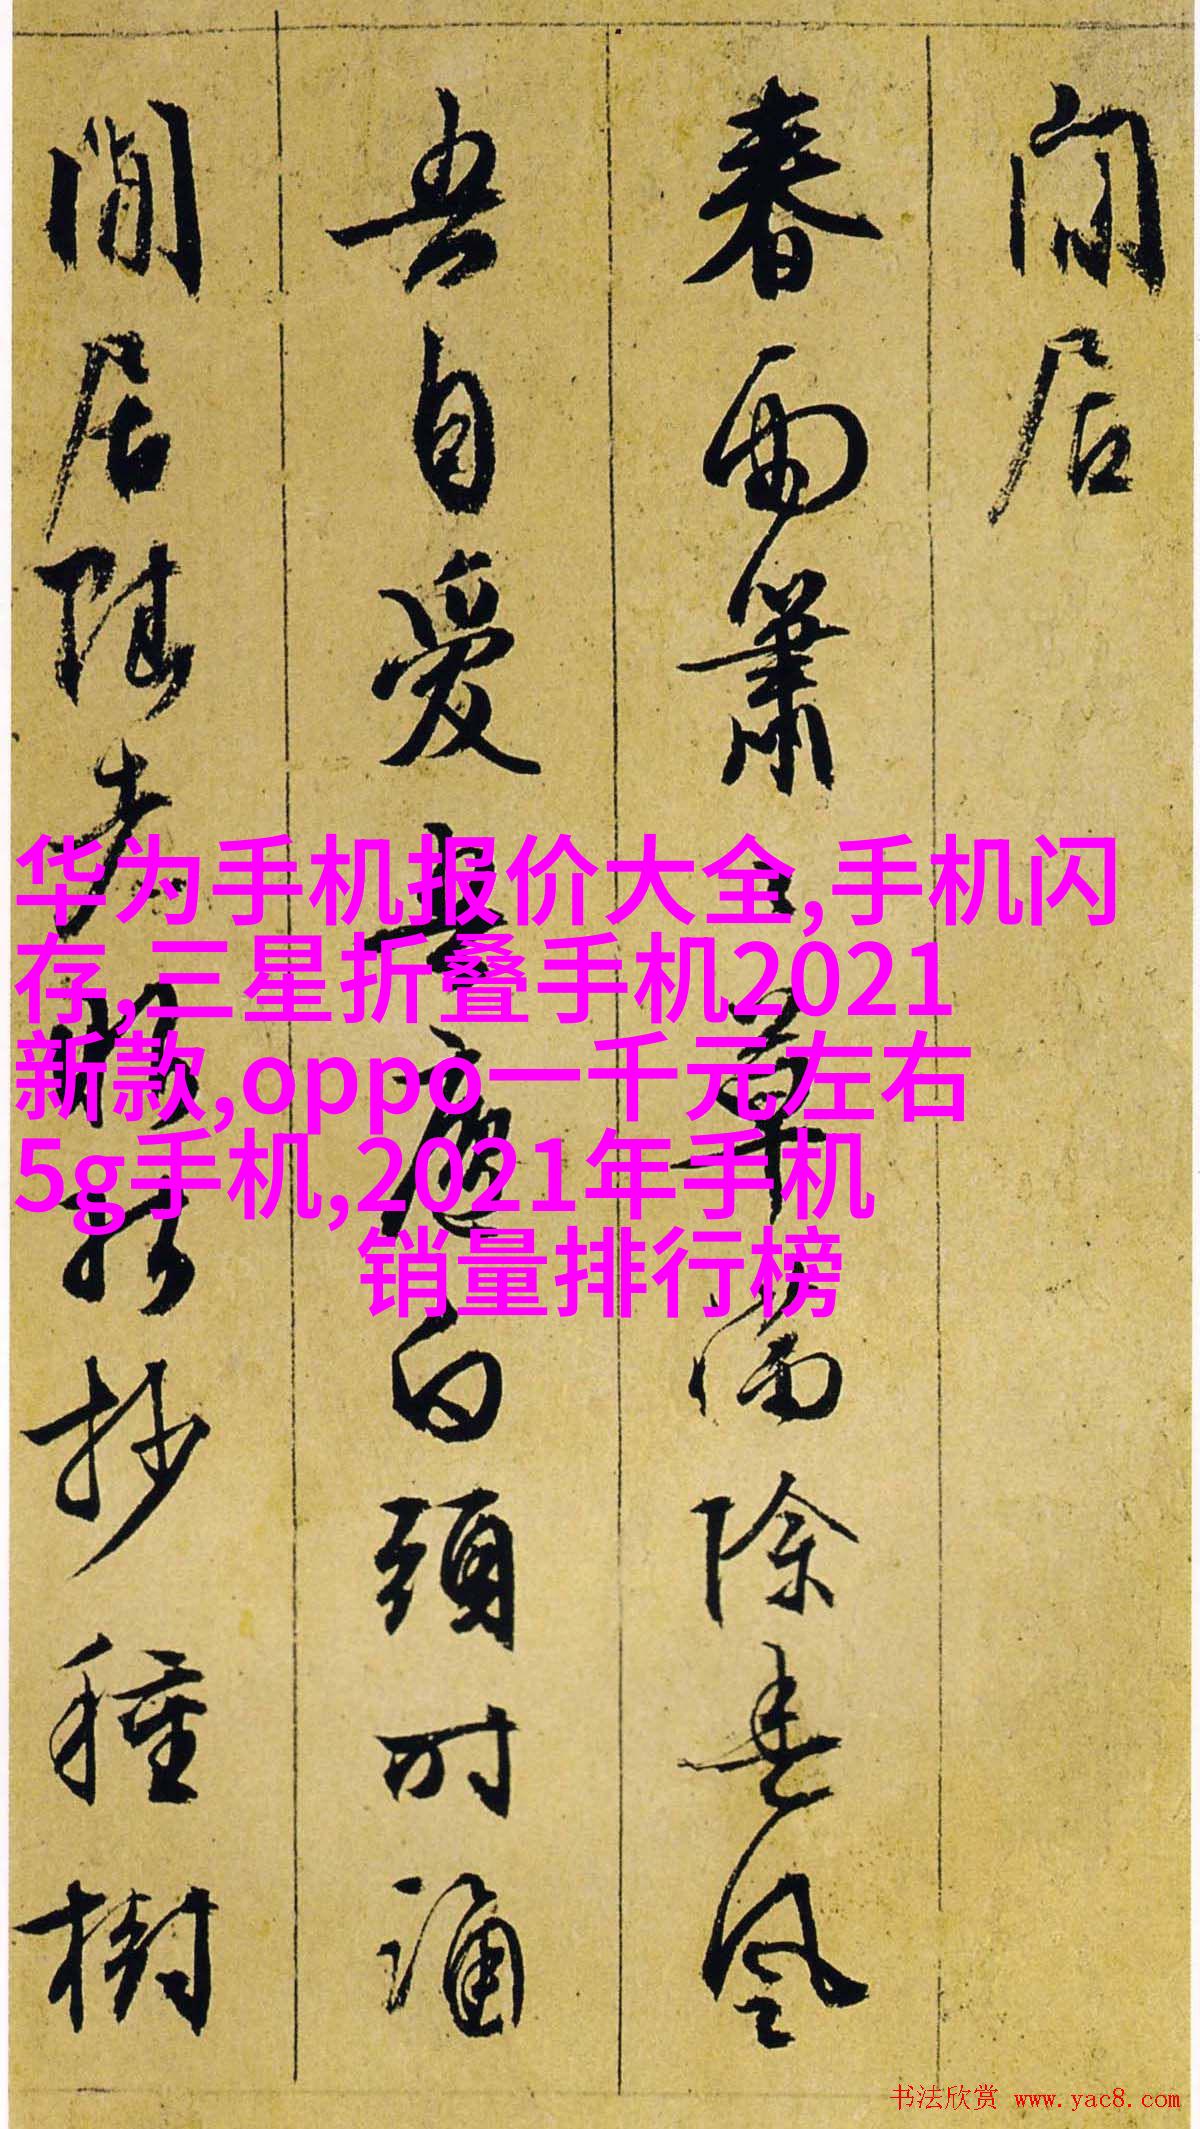 闲居
春雨萧〻革满除春风
吾自爱吾庐白头时诵
閒居赋老眼犹抄种樹
华为手机报价大全,手机闪
存,三星折叠手机2021
新款,oppo一千元左右
5g手机,2021年手机
销量排行榜
书法欣赏 www.yac8.com